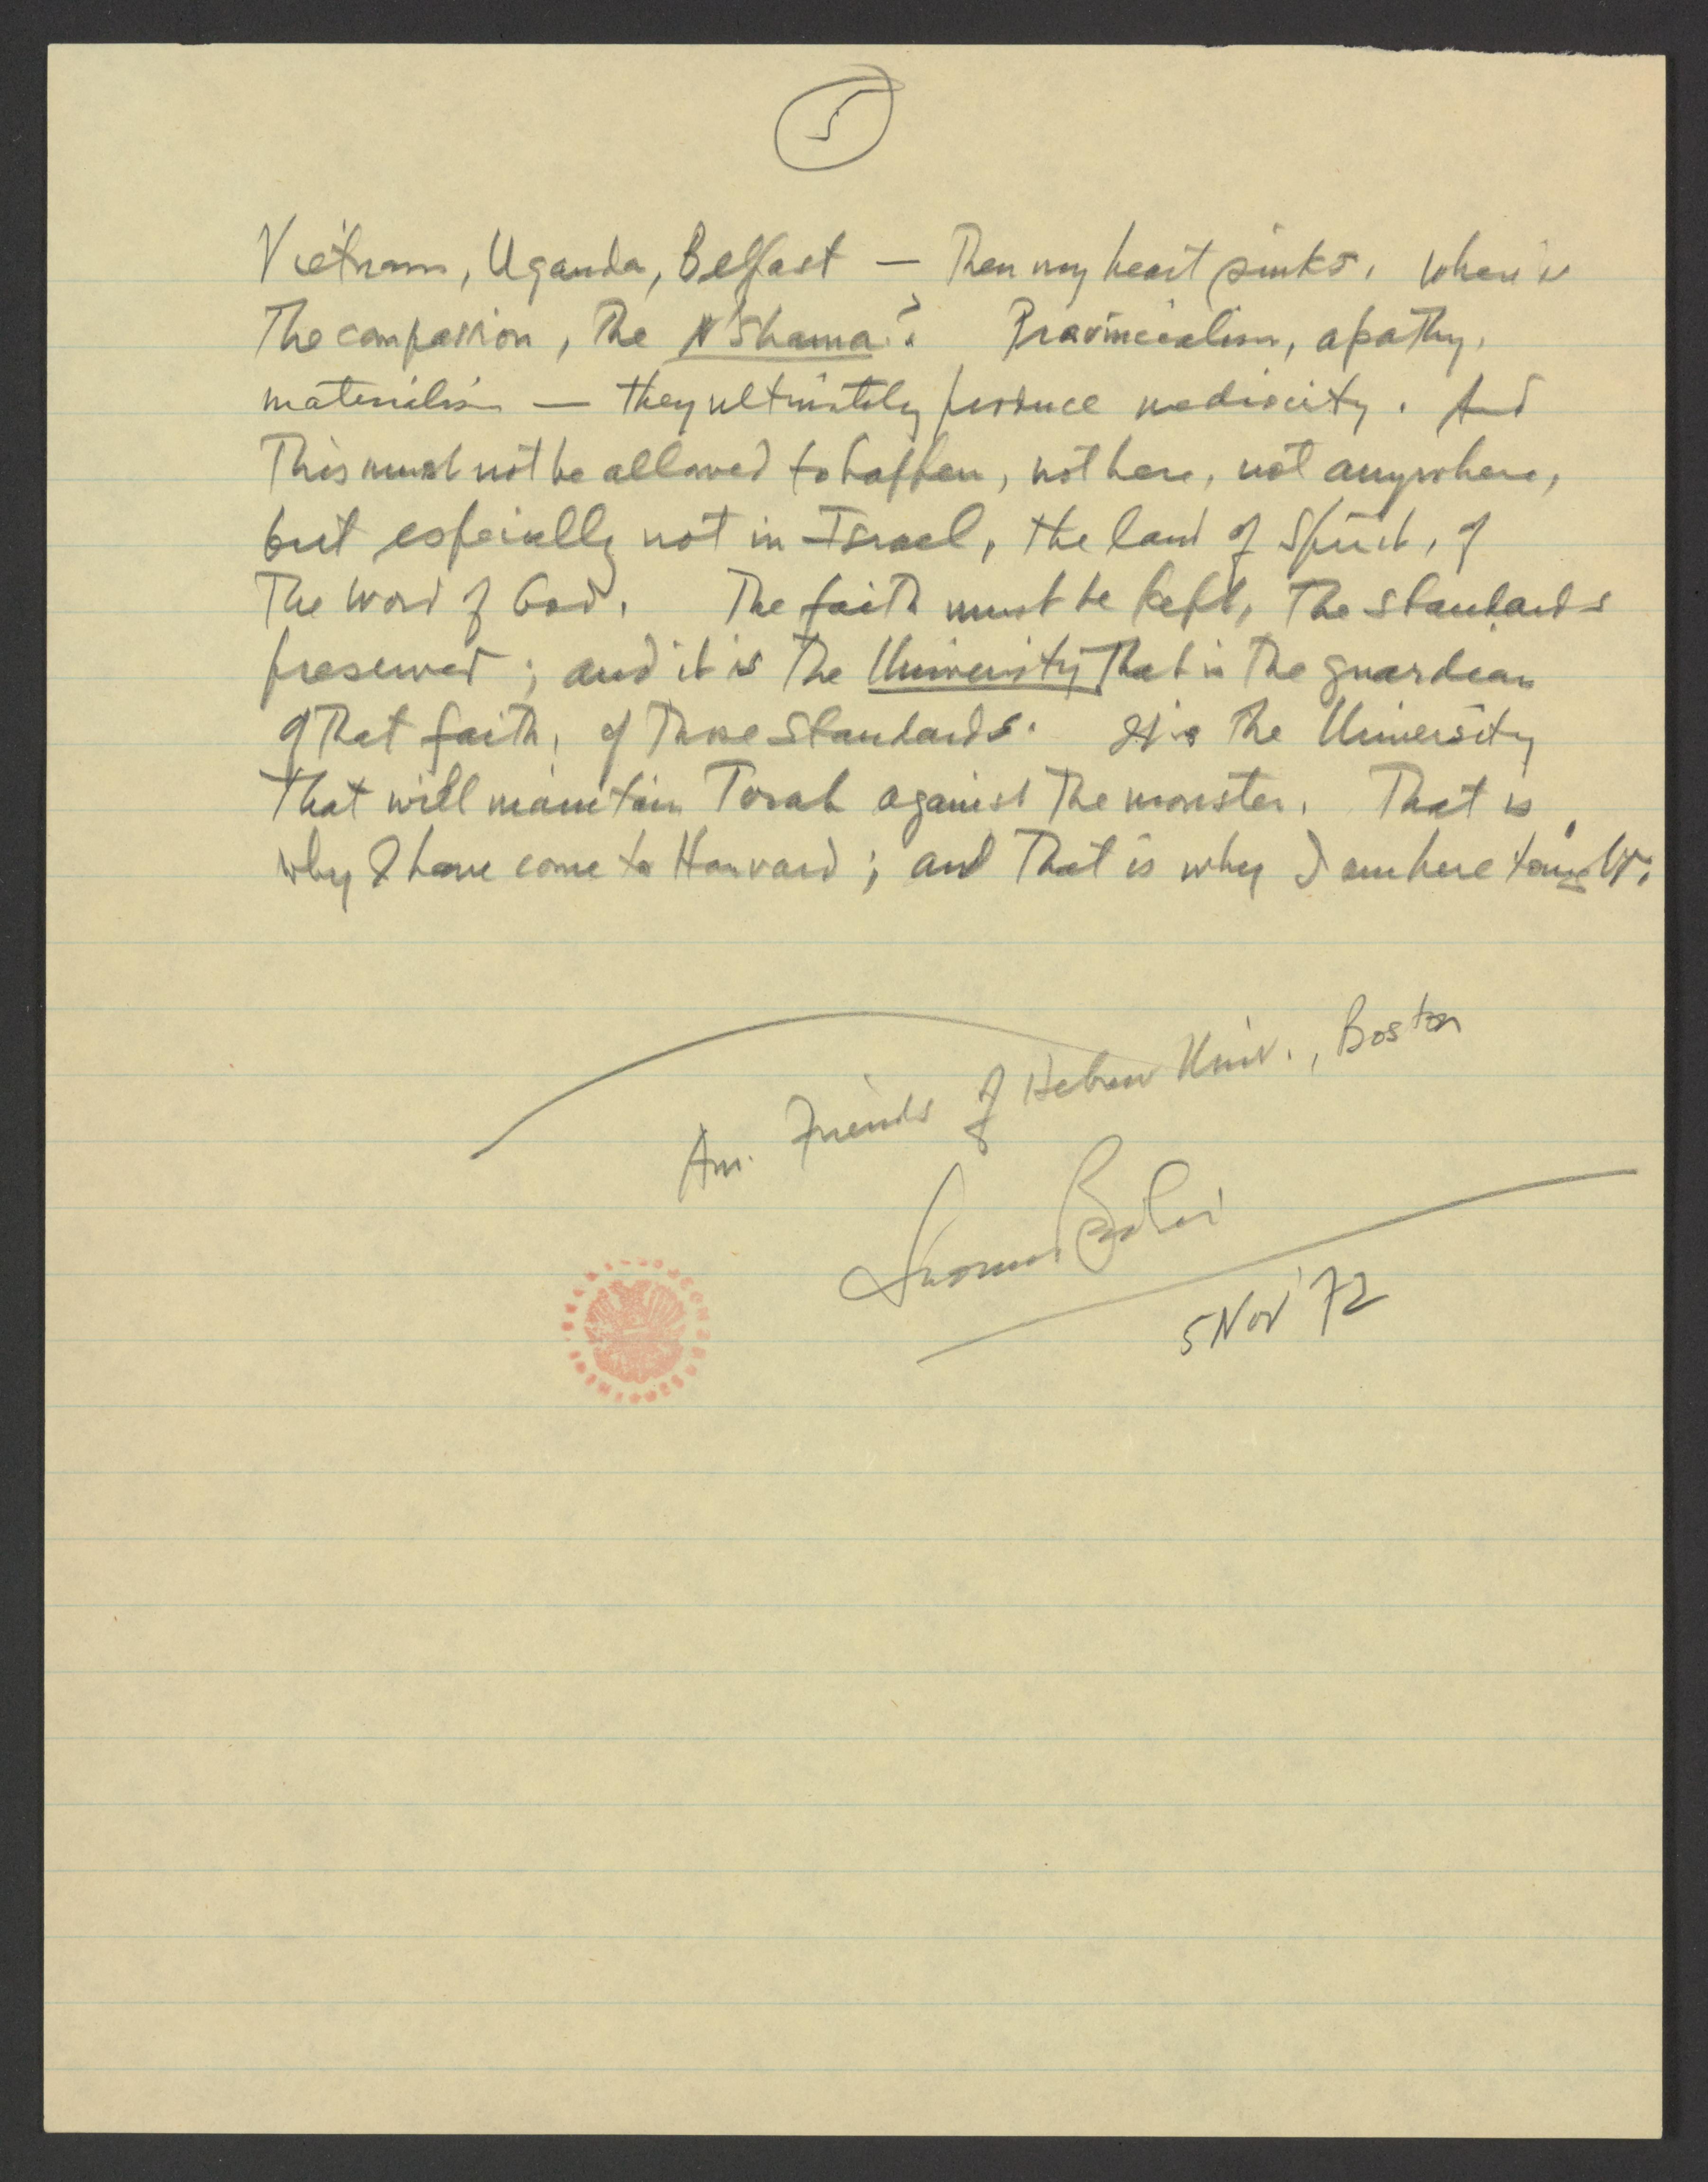 5
Vietnam, Uganda, Belfast — Then my heart sinks. Where is
The compassion, The N'Shama? Provincialism, apathy,
materialism — they ultimately produce mediocrity. And
This must not be allowed to happen, not here, not anywhere,
but especially not in Israel, the land of Spirit, of
The Word of God. The faith must be kept, The standards
preserved; and it is The University That is The guardian
of That faith, of Those standards. It is The University
That will maintain Torah against The monster. That is
why I have come to Harvard; and That is why I am here tonight.
Am. Friends of Hebrew Univ., Boston
5 Nov '72